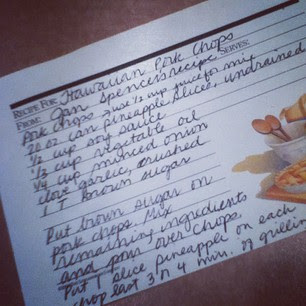 RECIPE FOR: Hawaiian Pork Chops
FROM: Jan Spencer's recipe SERVES:
Pork Chops Just 1/2 cup juice for mix
20 oz can pineapple slices, undrained
1/2 cup soy sauce
1/3 cup vegetable oil
1/4 cup minced onion
clove garlic, crushed
1 T brown sugar
Put brown sugar on
pork chops. Mix
remaining ingredients
and pour over chops.
Put 1 slice pineapple on each
chop last 3 n 4 min. of grilling